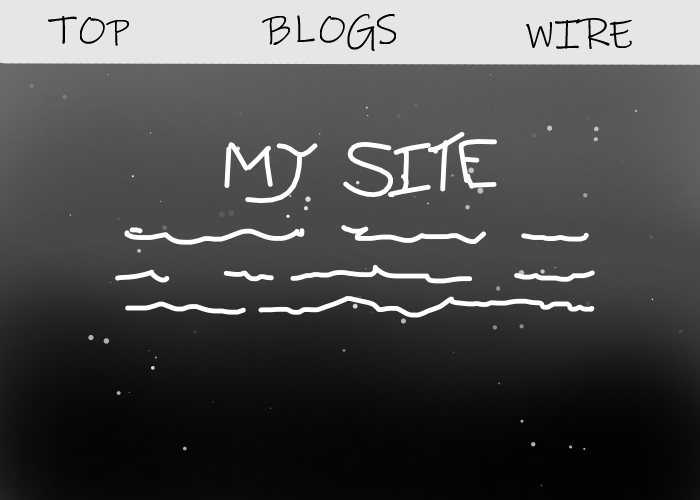 TOP BLOGS WIRE
MY SITE